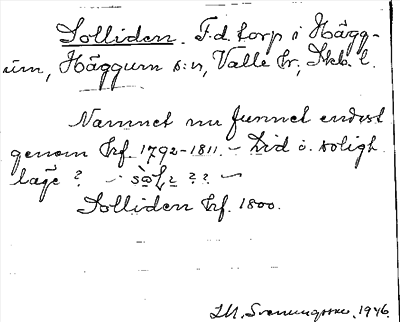 Solliden. F.d. torp i Hägg-
um, Häggum s:n, Valle hd, Skb. l.
Namnet nu funnet endast
genom hf. 1792-1811. - Lid i soligt
läge? - ??
Solliden hf. 1800.
1946.